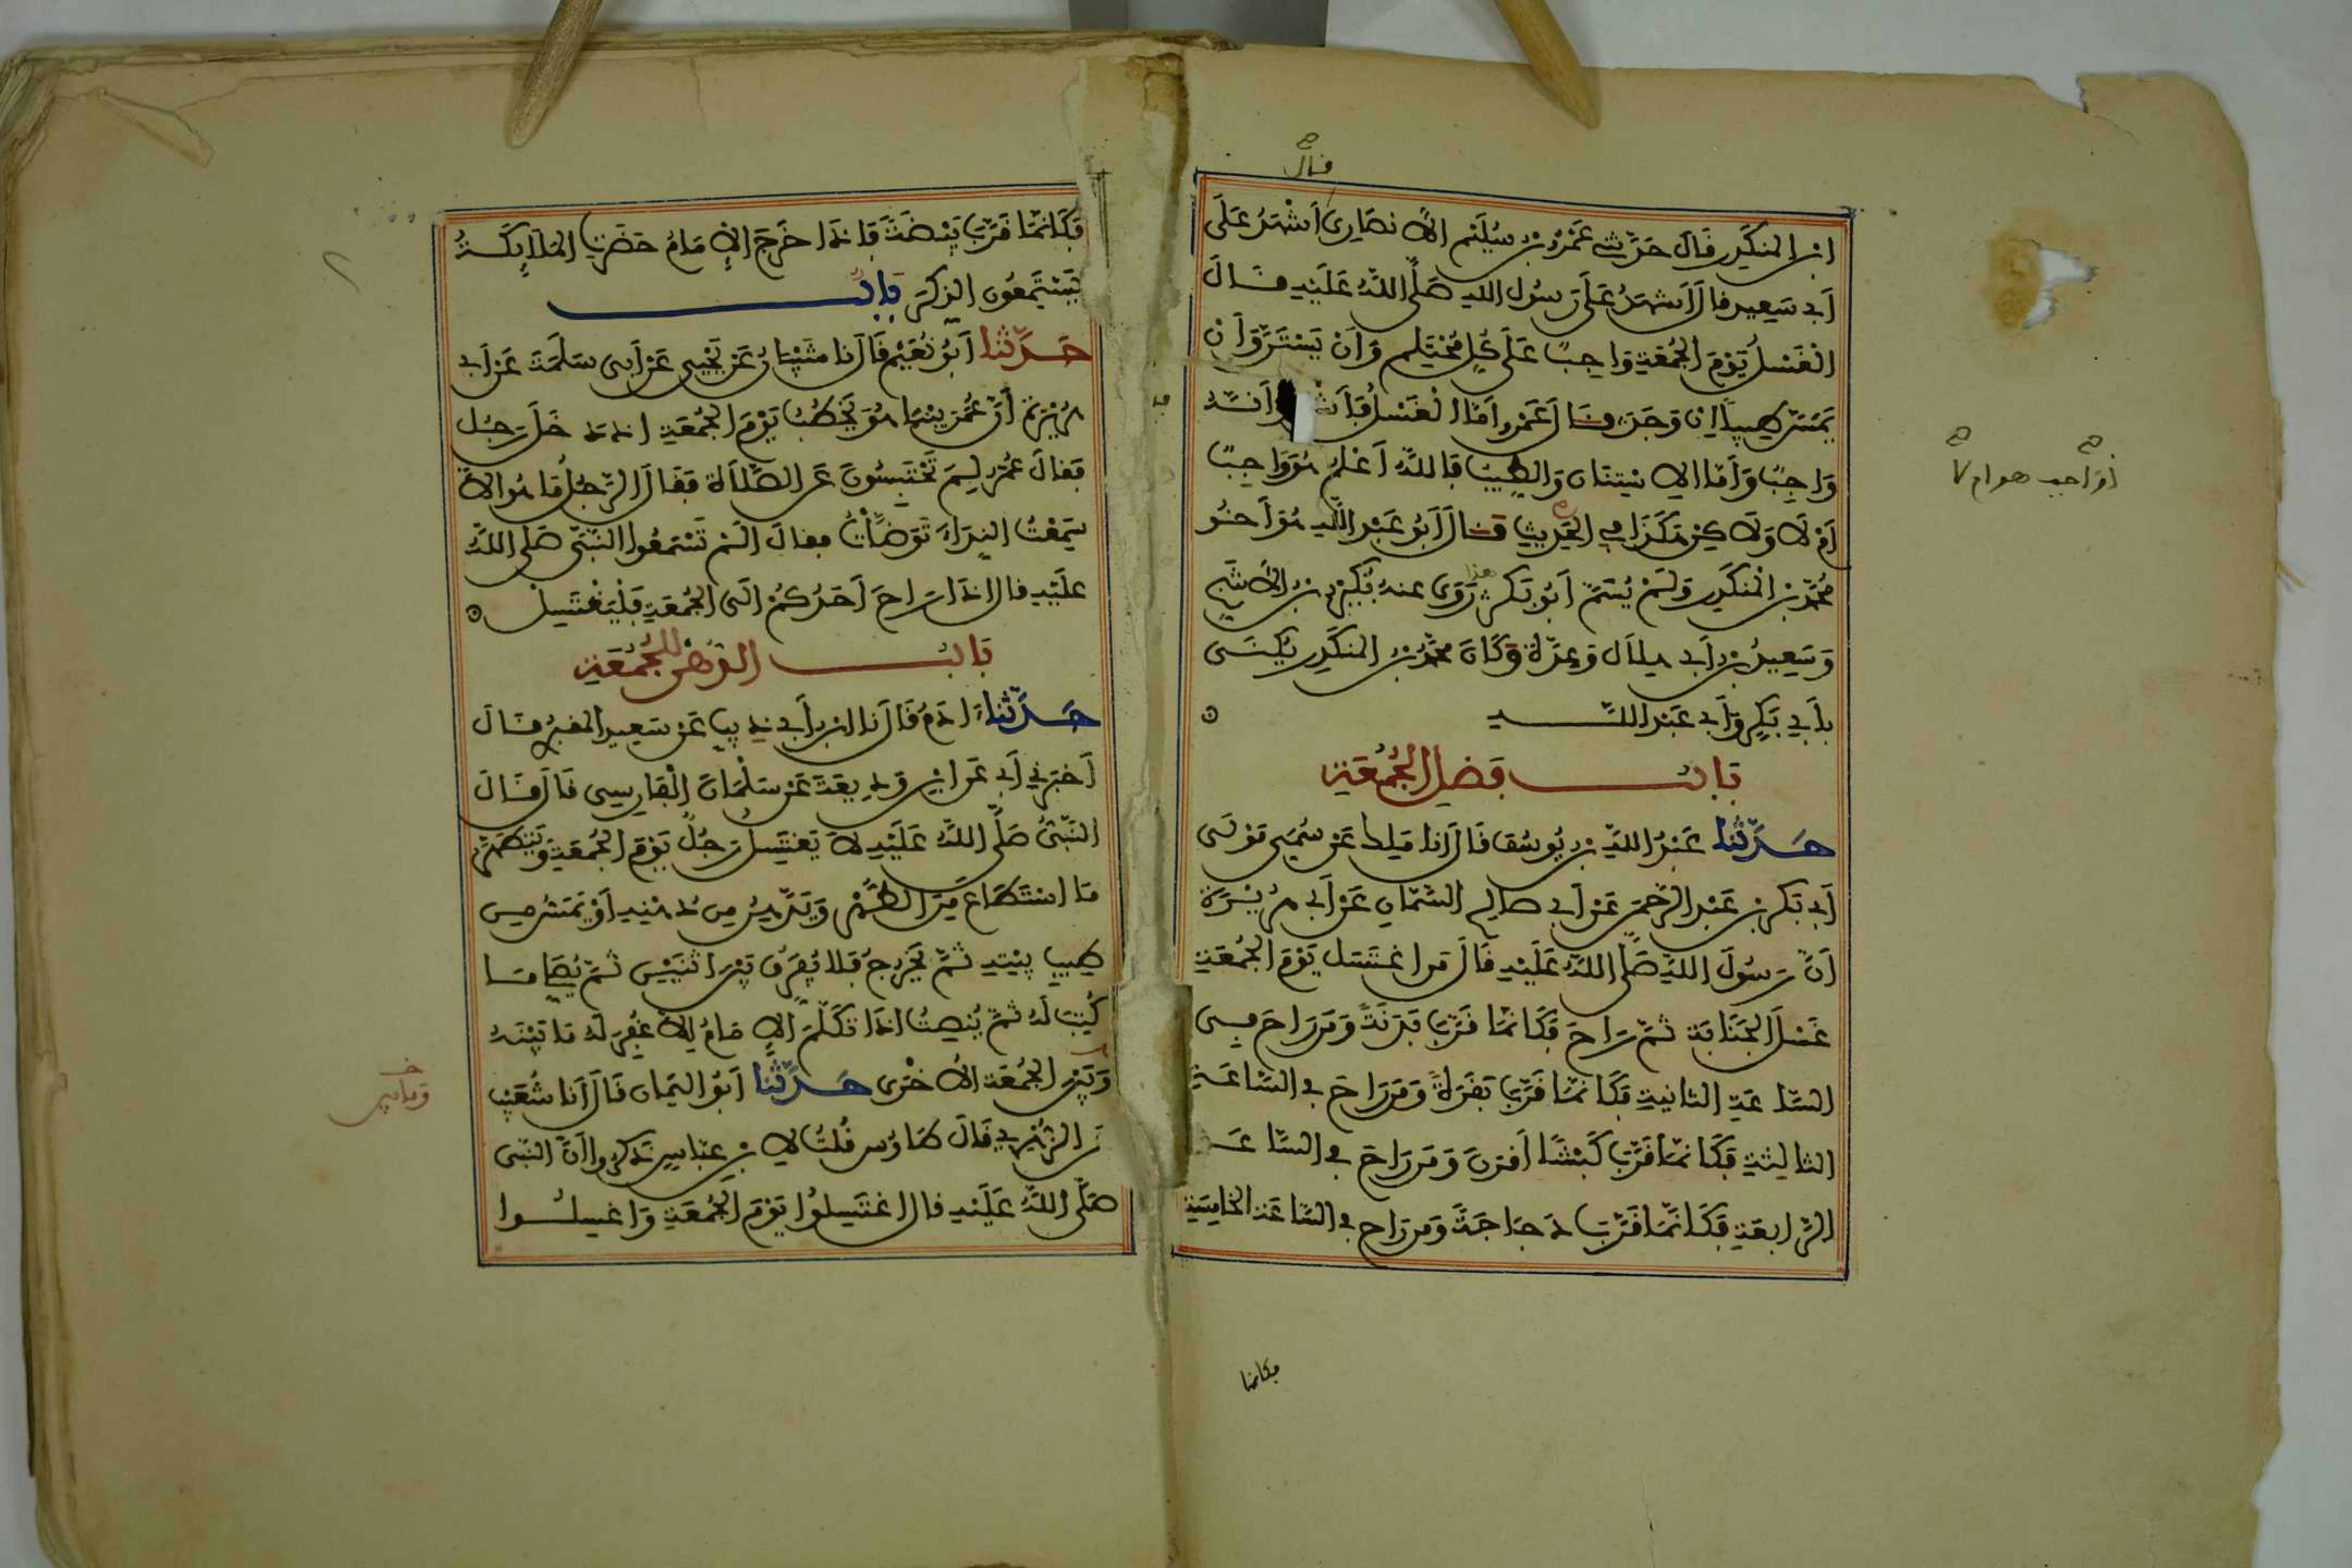 قال
ابن المنكدر قال حدثني عمرو بن سليم الانصاري اشهد على
أبي سعيد قال أشهد على رسول الله صلى الله عليه قال
الغسل يوم الجمعة واجب على كل محتلم وأن يستن وأن
يمس طيبا ان وجد قال عمرو أما الغسل فأشهد أنه
واجب وأما الاستنان والطيب فالله أعلم هو واجب
أم لا ولاكن هكذا في الحديث قال أبو عبد الله هو أخو
محمد بن المنكدر ولم يسم أبو بكر هذا روى عنه بكير بن الاشج
وسعيد بن أبي هلال وعدة وكان محمد بن المنكدر يكنى
بأبي بكر وأبي عبد الله
باب فضل الجمعة
حدثنا عبد الله بن يوسف قال انا ملك عن سمي مولى
أبي بكر بن عبد الرحمن عن أبي صالح السمان عن أبي هريرة
أن رسول الله صلى الله عليه قال من اغتسل يوم الجمعة
غسل الجنابة ثم راح فكانما قرب بدنة ومن راح في
الساعة الثانية فكانما قرب بقرة ومن راح في الساعة
الثالثة فكانما قرب كبشا أقرن ومن راح في الساعة
الرابعة فكانما قرب دجاجة ومن راح في الساعة الخامسة
فكانما
أواجب هو ام لا
فكانما قرب بيضة فإذا خرج الإمام حضرت الملائكة
يستمعون الذكر باب
حدثنا أبو نعيم قال نا شيبان عن يحيى عن أبي سلمة عن أبي
هريرة أن عمر بينما هو يخطب يوم الجمعة اذ دخل رجل
فقال عمر لم تحتبسون عن الصلاة فقال الرجل ما هو الا
سمعت النداء توضأت فقال ألم تسمعوا النبي صلى الله
عليه قال اذا راح أحدكم الى الجمعة فليغتسل
باب الدهن للجمعة
حدثنا ادم قال نا ابن أبي ذيب عن سعيد المقبري قال
أخبرني أبي عن ابن وديعة عن سلمان الفارسي قال قال
النبي صلى الله عليه لا يغتسل رجل يوم الجمعة ويتطهر
ما استطاع من الطهر ويدهن من دهنه أو يمس من
طيب بيته ثم يخرج فلا يفرق بين اثنين ثم يصلي ما
كتب له ثم ينصت اذا تكلم الامام إلا غفر له ما بينه
وبين الجمعة الأخرى حدثنا أبو اليمان قال أنا شعيب
عن الزهري قال طاوس قلت لابن عباس ذكروا أن النبي
صلى الله عليه قال اغتسلوا يوم الجمعة واغسلوا
وما بين